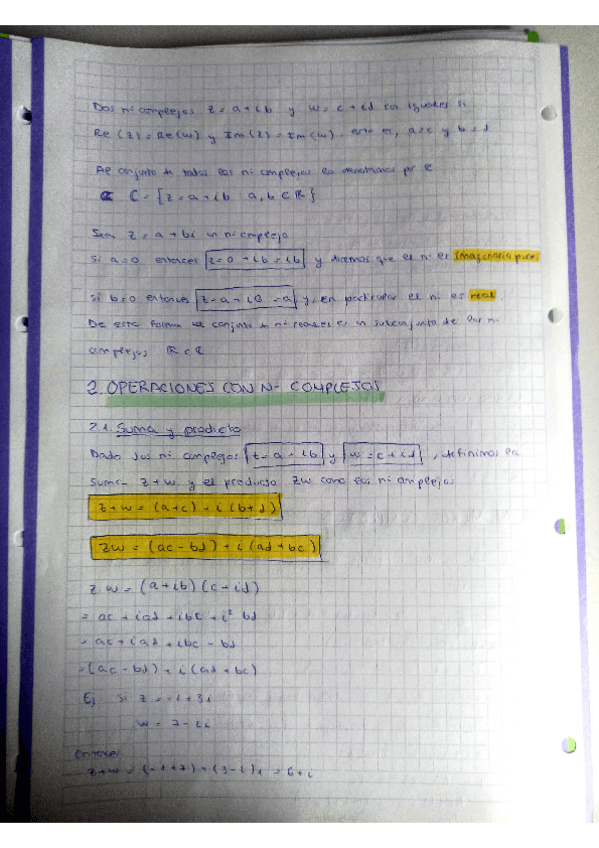 Dos nº complejos z = a + ib y w = c + id son iguales si
Re (z) = Re(w) y Im(z) = Im(w). esto es, a=c y b=d
Al conjunto de todos los nº complejos lo denotamos por C
ℂ = {z = a + ib : a, b ∈ ℝ}
Sea z = a + bi un nº complejo
Si a=0 entonces z=0 + ib = ib y diremos que el nº es imaginario puro.
Si b=0 entonces z = a + i0 = a y, en particular el nº es real.
De esta forma el conjunto de nº reales es un subconjunto de los nº
complejos ℝ ⊂ ℂ
2. OPERACIONES CON Nº COMPLEJOS
2.1. Suma y producto
Dado dos nº complejos z = a + ib y w = c + id, definimos la
suma z + w y el producto zw como los nº complejos
z + w = (a+c) + i (b+d)
zw = (ac - bd) + i (ad + bc)
z w = (a + ib) (c + id)
= ac + iad + ibc + i² bd
= ac + iad + ibc - bd
= (ac - bd) + i (ad + bc)
Ej. Si z = -1 + 3i
w = 7 - 2i
Entonces
z + w = (-1 + 7) + (3 - 2)i = 6 + i